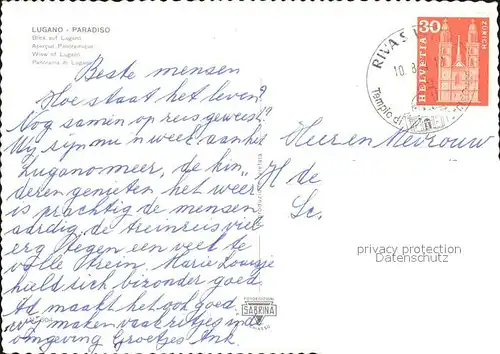 LUGANO - PARADISO
Blick auf Lugano
Aperçue Panoramique
View of Lugano
Panorama di Lugano
Beste mensen
Hoe staat het leven?
Nog samen op reis geweest?
Wij zijn nu 'n week aan het
Luganomeer, de kin
deren genieten het weer
is prachtig de mensen
aardig, de treinreis viel
erg tegen een veel te
volle trein Marie Louise
hield zich bizonder goed.
Ad maakt het ook goed
wij maken vaak ritjes in de
omgeving Groetjes Ank.
Heer en Mevrouw
H de
Sc.
RIVA S.
10. 8.
Tempio di
HELVETIA
30
ZÜRICH
privacy protection
Datenschutz
FOTOEDIZIONI
SABRINA